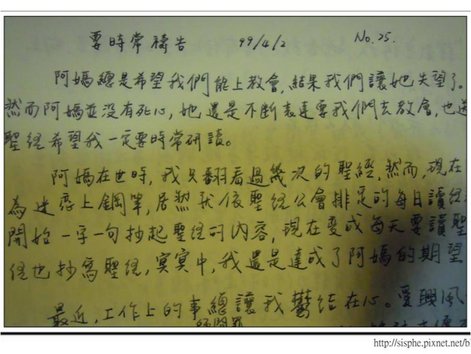 要時常禱告 99/4/2 No.25.
阿媽總是希望我們能上教會,結果我們讓她失望了。
然而阿媽並沒有死心,她還是不斷表達要我們去教會,也送
聖經希望我一定要時常研讀。
阿媽在世時,我只翻看過幾次的聖經,然而,現在
為迷戀上鋼筆,居然我依聖經公會排定的每日讀經
開始一字一句抄起聖經的內容,現在變成每天要讀聖
經也抄寫聖經,冥冥中,我還是達成了阿媽的期望
最近,工作上的事總讓我鬱結在心。受興風
http://sisphe.pixnet.net/b